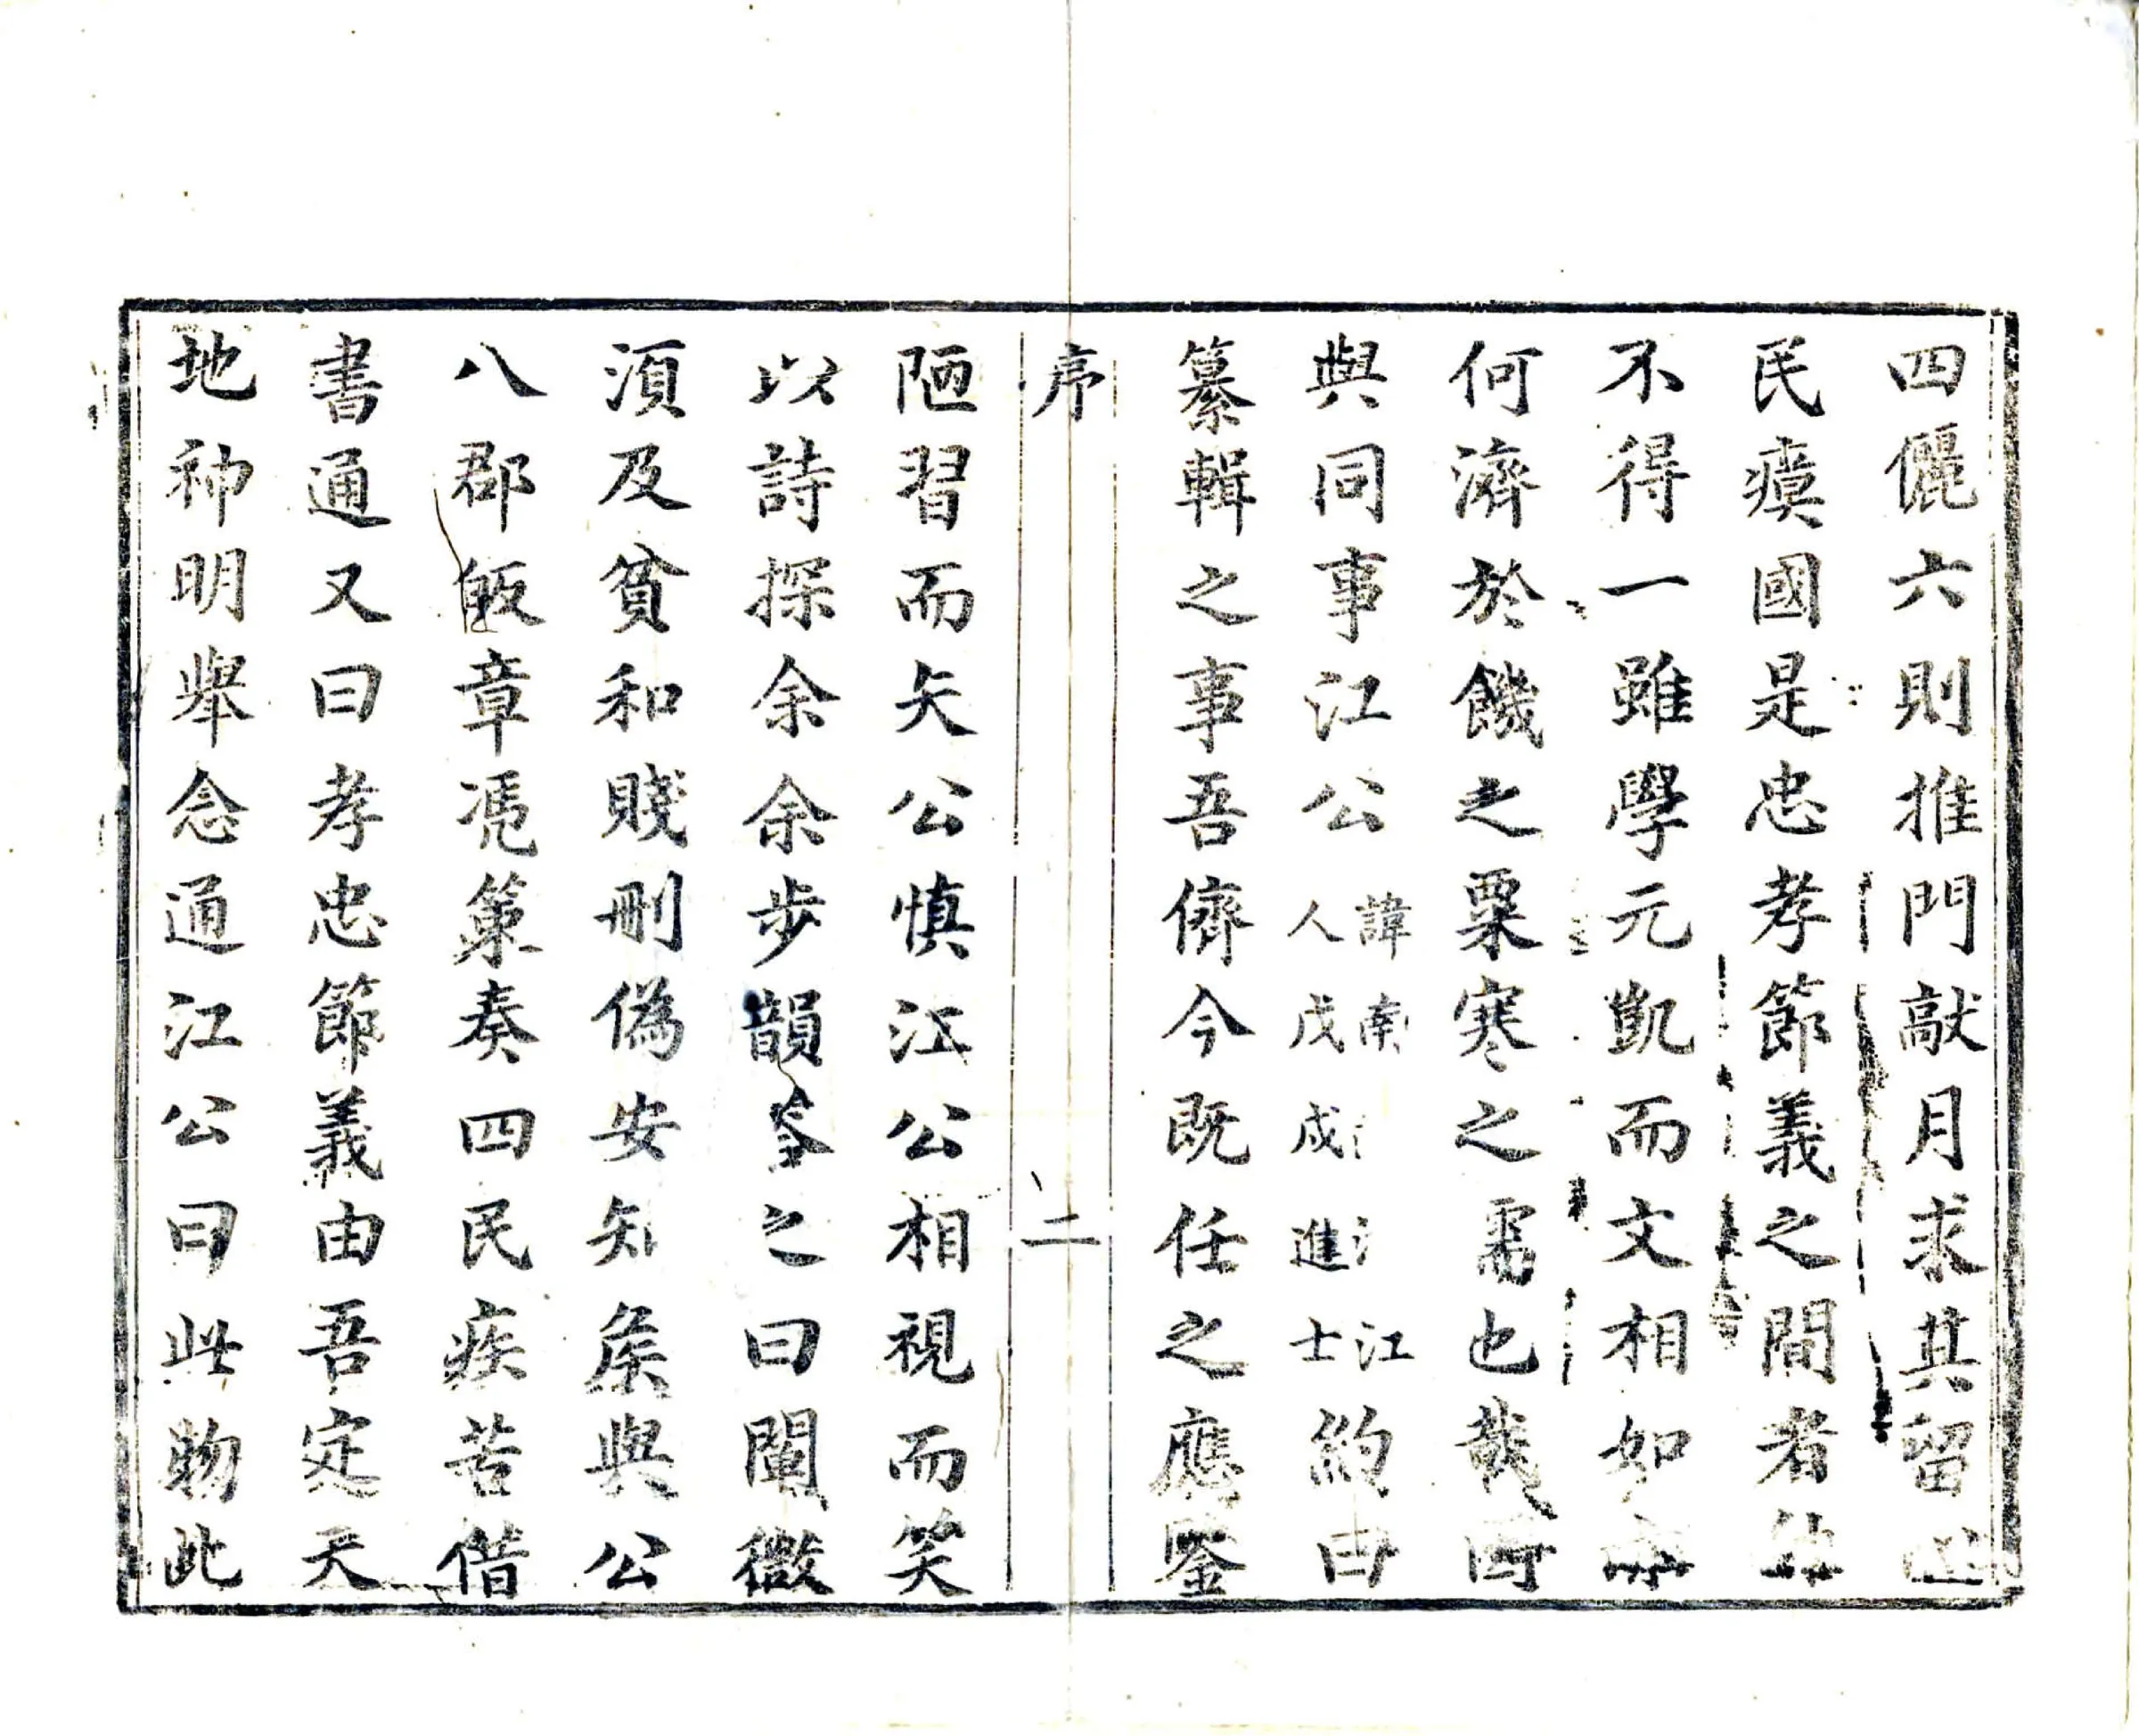 四儷六則推門敲月求其留心
民瘼國是忠孝節義之間者
不得一雖學元凱而文相如
何濟於饑之粟寒之需也哉因
與同事江公諱南江人戊戌進士約曰
纂輯之事吾儕今既任之應鑒
序 二
陋習而矢公慎江公相視而笑
以詩探余余步韻答之曰闡微
須及貧和賤刪偽安知矦與公
八郡皈章凴䇿奏四民疾苦借
書通又曰孝忠節義由吾定天
地神明舉念通江公曰此物此